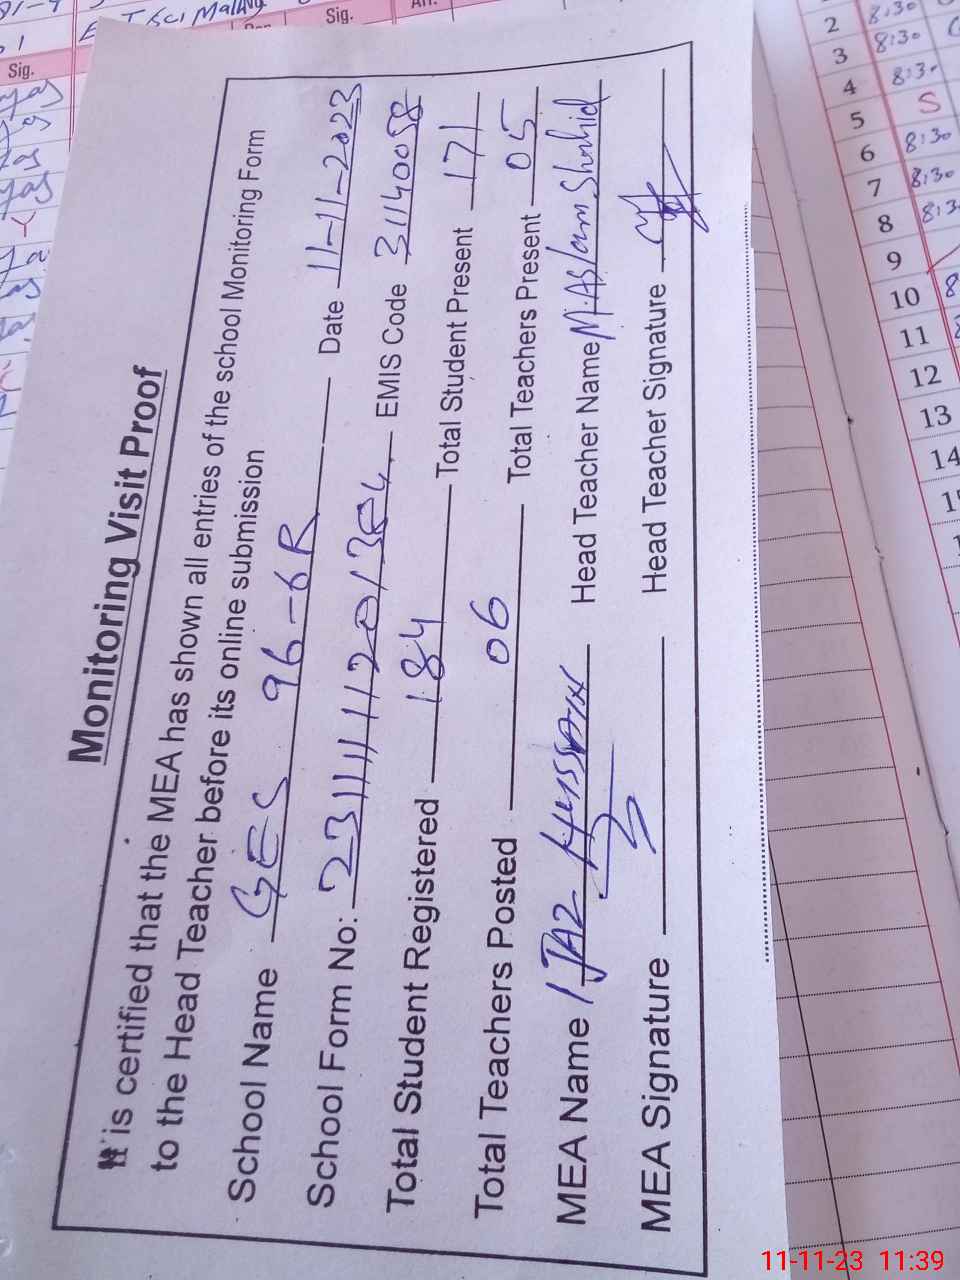 Monitoring Visit Proof
It is certified that the MEA has shown all entries of the school Monitoring Form
to the Head Teacher before its online submission
School Name GES 96-6R Date 11-11-2023
School Form No: 231111120/3E4 EMIS Code 31140058
Total Student Registered 184 Total Student Present 171
Total Teachers Posted 06 Total Teachers Present 05
MEA Name IJAZ Hussain Head Teacher Name M.Aslam Shahid
MEA Signature Head Teacher Signature
Sig.
Sig.
2 8:30
3 8:30
4 8:3
5 S
6 8:30
7 8:30
8 8:3
9
10 8
11 8
12
13
14
11-11-23 11:39